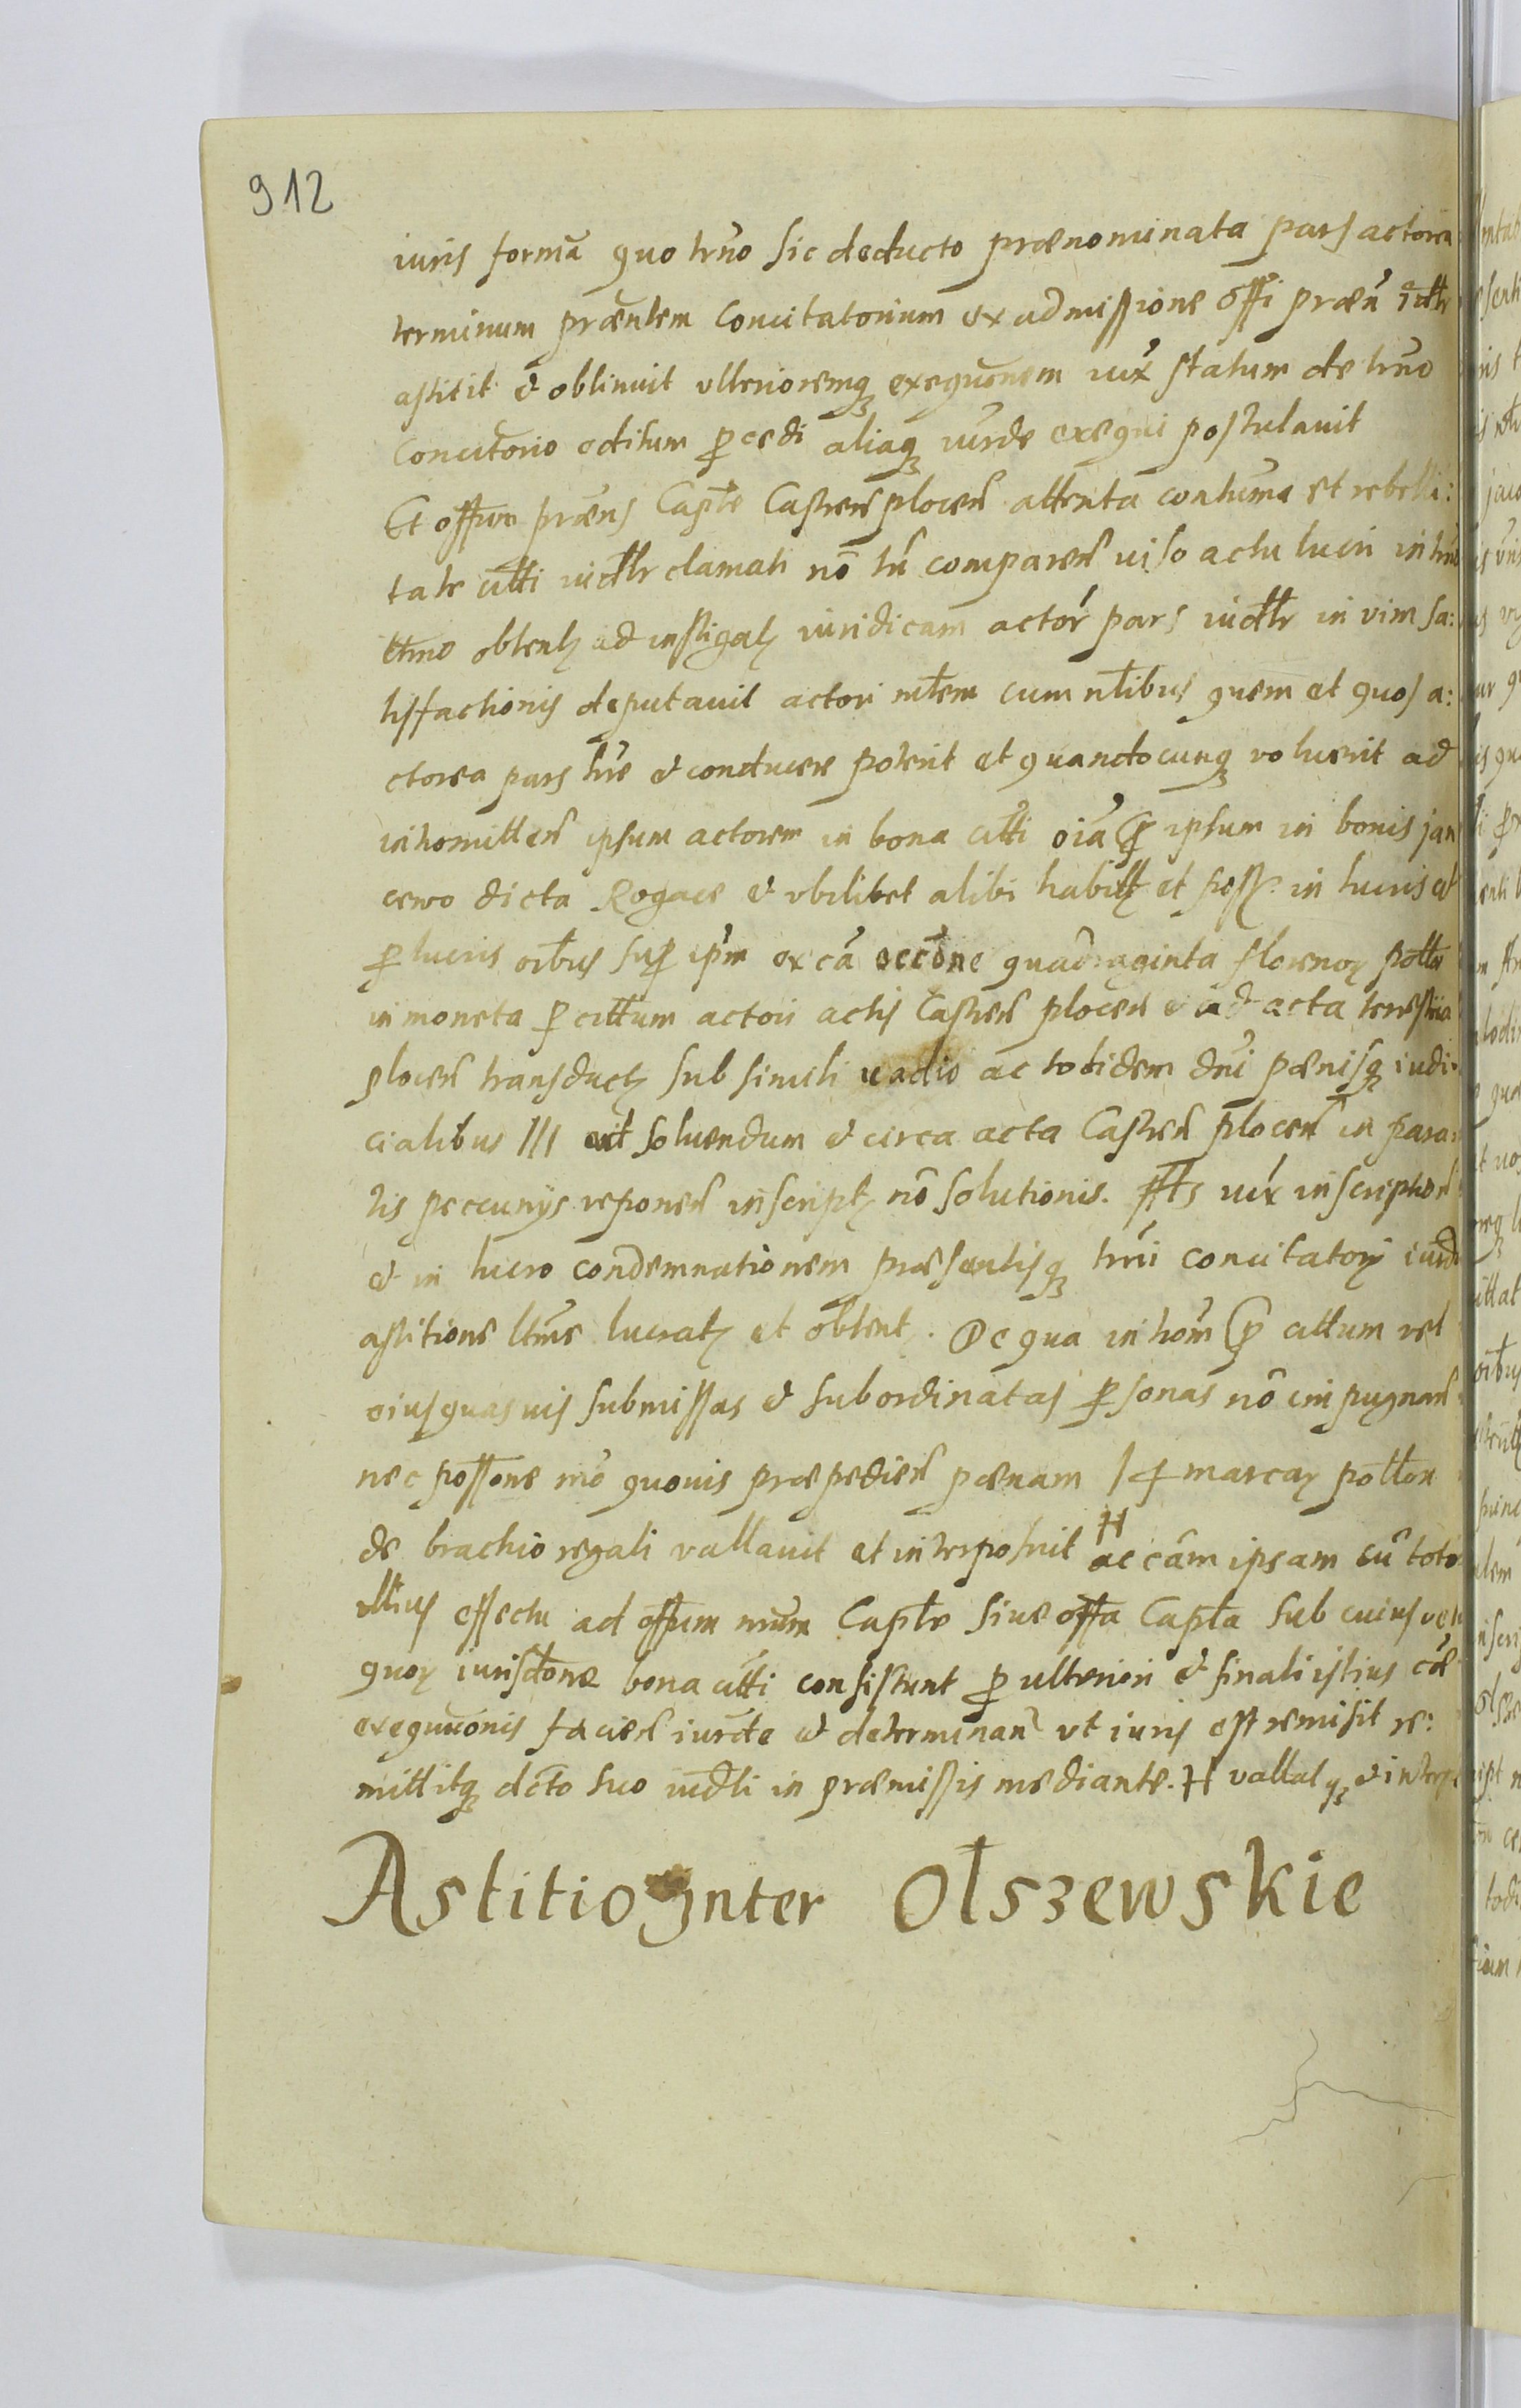 912
iuris formā quo trno sic deducto prænominata pars actorea
terminum præntem concitatorium ex admissione offi præn iudlr
astitit & obtinuit ulterioremq exequōnem iux statum de trno
concitorio editum p cedi aliaq iurde exequi postulavit
Et offm præns Capte Castren plocen attenta contuma et rebelli:
tate citti iudlr clamati nō tn comparen viso actu lucri in trno
ltimo obtent ad instigat iuridicam actor pars iudlr in vim sa:
tisfactionis deputavit actori mtem cum ntibus quem et quos a:
ctorea pars hre & conducere poterit et quandocunq voluerit ad
intromitten ipsum actorem in bona citti oia p ipsum in bonis jan
cewo dicta Rogace & ubilibet alibi habit et poss in lucris et
p lucris oibus sup ipm ex cā occōne quadraginta florenor pollr
in moneta p cittum actori actis Castren plocen & ad acta terrestria
plocen transduct sub simili vadio ac totidem dni pænisq iudi
cialibus III ext soluendum & circa acta Castren plocen in para
tis peccunijs reponen inscript nō solutionis. Iux inscription
& in lucro condemnationem præsentisq trni concitatorij iurd
astitione ltime lucrat et obtent. De qua intrōm p cittum vel
eius quasvis submissas & subordinatas p sonas nō impugnan
nec possone mō quovis præpedien pænam 14 marcar pollon
de brachio regali vallavit et interposuit H ac cām ipsam cū toto
illius effectu ad offum mum Capte sive offa Capta sub cuius vel
quor iurisdtone bona citti consistunt p ulteriori & finali istius cæ
exequuonis facien iurde & determinan ut iuris est remisit re:
mittitq dcto suo iudli in præmissis mediante. H vallat q & interp
Astitio Inter Olszewskie